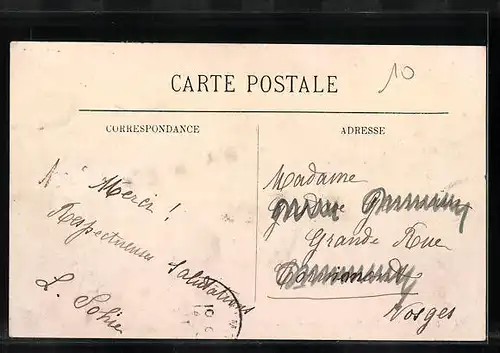 10
CARTE POSTALE
CORRESPONDANCE
ADRESSE
Merci !
Respectueuses Salutations
L. Sohier
Madame
Grande Rue
Vosges